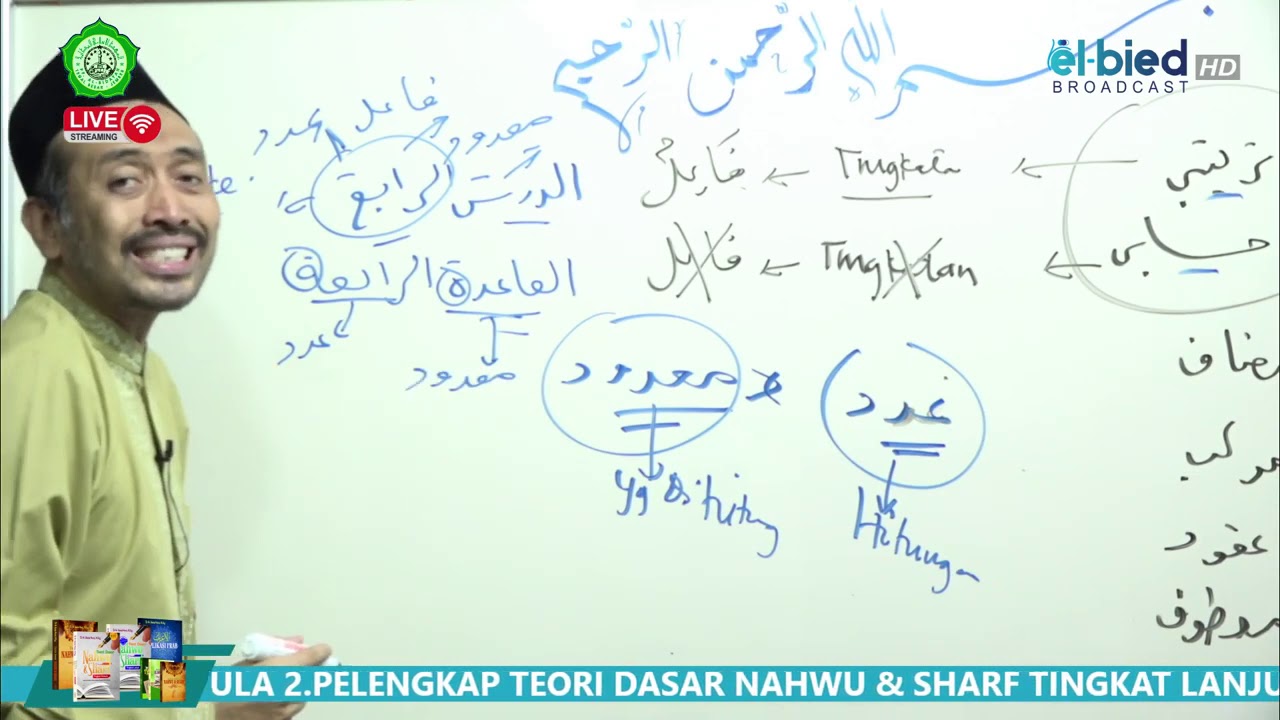 بسم الله الرحمن الرحيم
el-bied HD
BROADCAST
LIVE
STREAMING
فاعل
عدد
معدود
الدرس الرابع
فاعل ← Tingkatan ← ترتيبي
القاعدة الرابعة
فاعل ← Tingkatan ← حسابي
عدد
معدود
معدود
عدد
مضاف
Yg Dihitung
Hitungan
مركب
عقود
معطوف
ULA 2.PELENGKAP TEORI DASAR NAHWU & SHARF TINGKAT LANJU